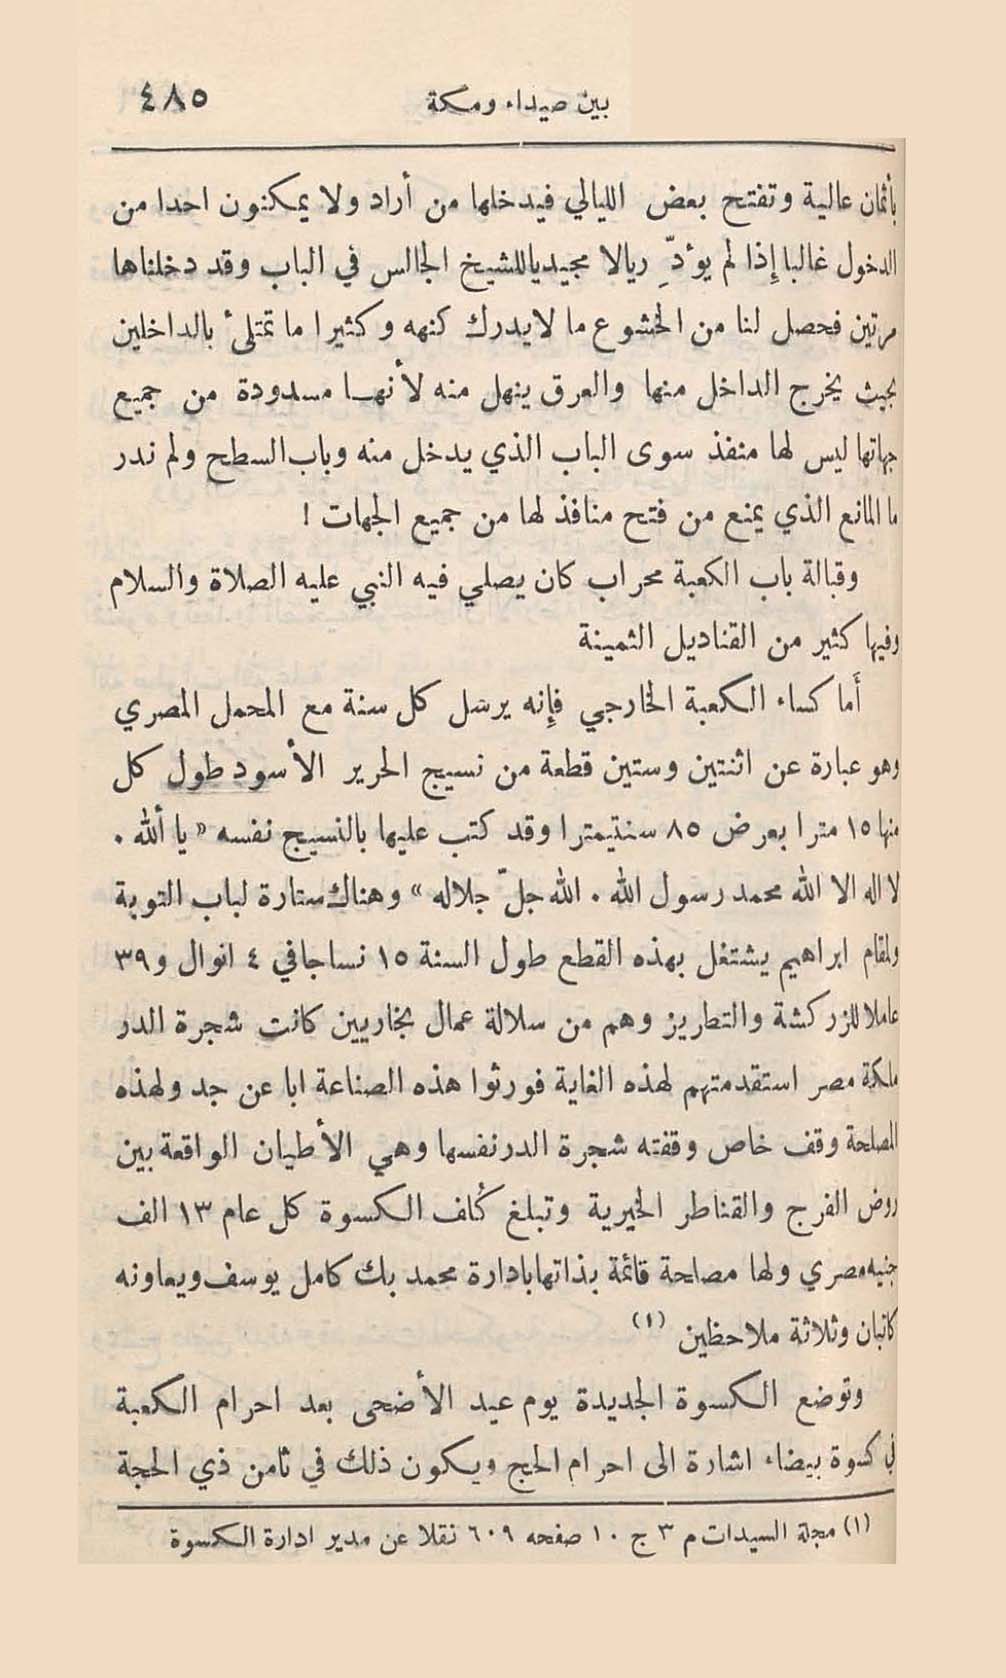 بين صيداء ومكة
٤٨٥
بأثمان عالية وتفتح بعض الليالي فيدخلها من أراد ولا يمكنون احدا من
الدخول غالبا إذا لم يؤدِّ ريالا مجيدياللشيخ الجالس في الباب وقد دخلناها
مرتين فحصل لنا من الخشوع ما لايدرك كنهه وكثيرا ما تمتلئ بالداخلين
بحيث يخرج الداخل منها والعرق ينهل منه لأنهـا مسدودة من جميع
جهاتها ليس لها منفذ سوى الباب الذي يدخل منه وباب السطح ولم ندر
ما المانع الذي يمنع من فتح منافذ لها من جميع الجهات !
وقبالة باب الكعبة محراب كان يصلي فيه النبي عليه الصلاة والسلام
وفيها كثير من القناديل الثمينة
أما كساء الكعبة الخارجي فإنه يرسل كل سنة مع المحمل المصري
وهو عبارة عن اثنتين وستين قطعة من نسيج الحرير الأسود طول كل
منها ١٥ مترا بعرض ٨٥ سنتيمترا وقد كتب عليها بالنسيج نفسه « يا ألله .
لا اله الا الله محمد رسول الله . الله جلّ جلاله » وهناك ستارة لباب التوبة
ولمقام ابراهيم يشتغل بهذه القطع طول السنة ١٥ نساجا في ٤ انوال و٣٩
عاملا للزركشة والتطريز وهم من سلالة عمال بخاريين كانت شجرة الدر
ملكة مصر استقدمتهم لهذه الغاية فورثوا هذه الصناعة ابا عن جد ولهذه
المصلحة وقف خاص وقفته شجرة الدرنفسها وهي الأطيان الواقعة بين
روض الفرج والقناطر الخيرية وتبلغ كُلف الكسوة كل عام ١٣ الف
جنيه مصري ولها مصلحة قائمة بذاتها بادارة محمد بك كامل يوسف ويعاونه
كاتبان وثلاثة ملاحظين (١)
وتوضع الكسوة الجديدة يوم عيد الأضحى بعد احرام الكعبة
في كسوة بيضاء اشارة الى احرام الحج ويكون ذلك في ثامن ذي الحجة
(١) مجلة السيدات م ٣ ج ١٠ صفحه ٦٠٩ نقلا عن مدير ادارة الكسوة